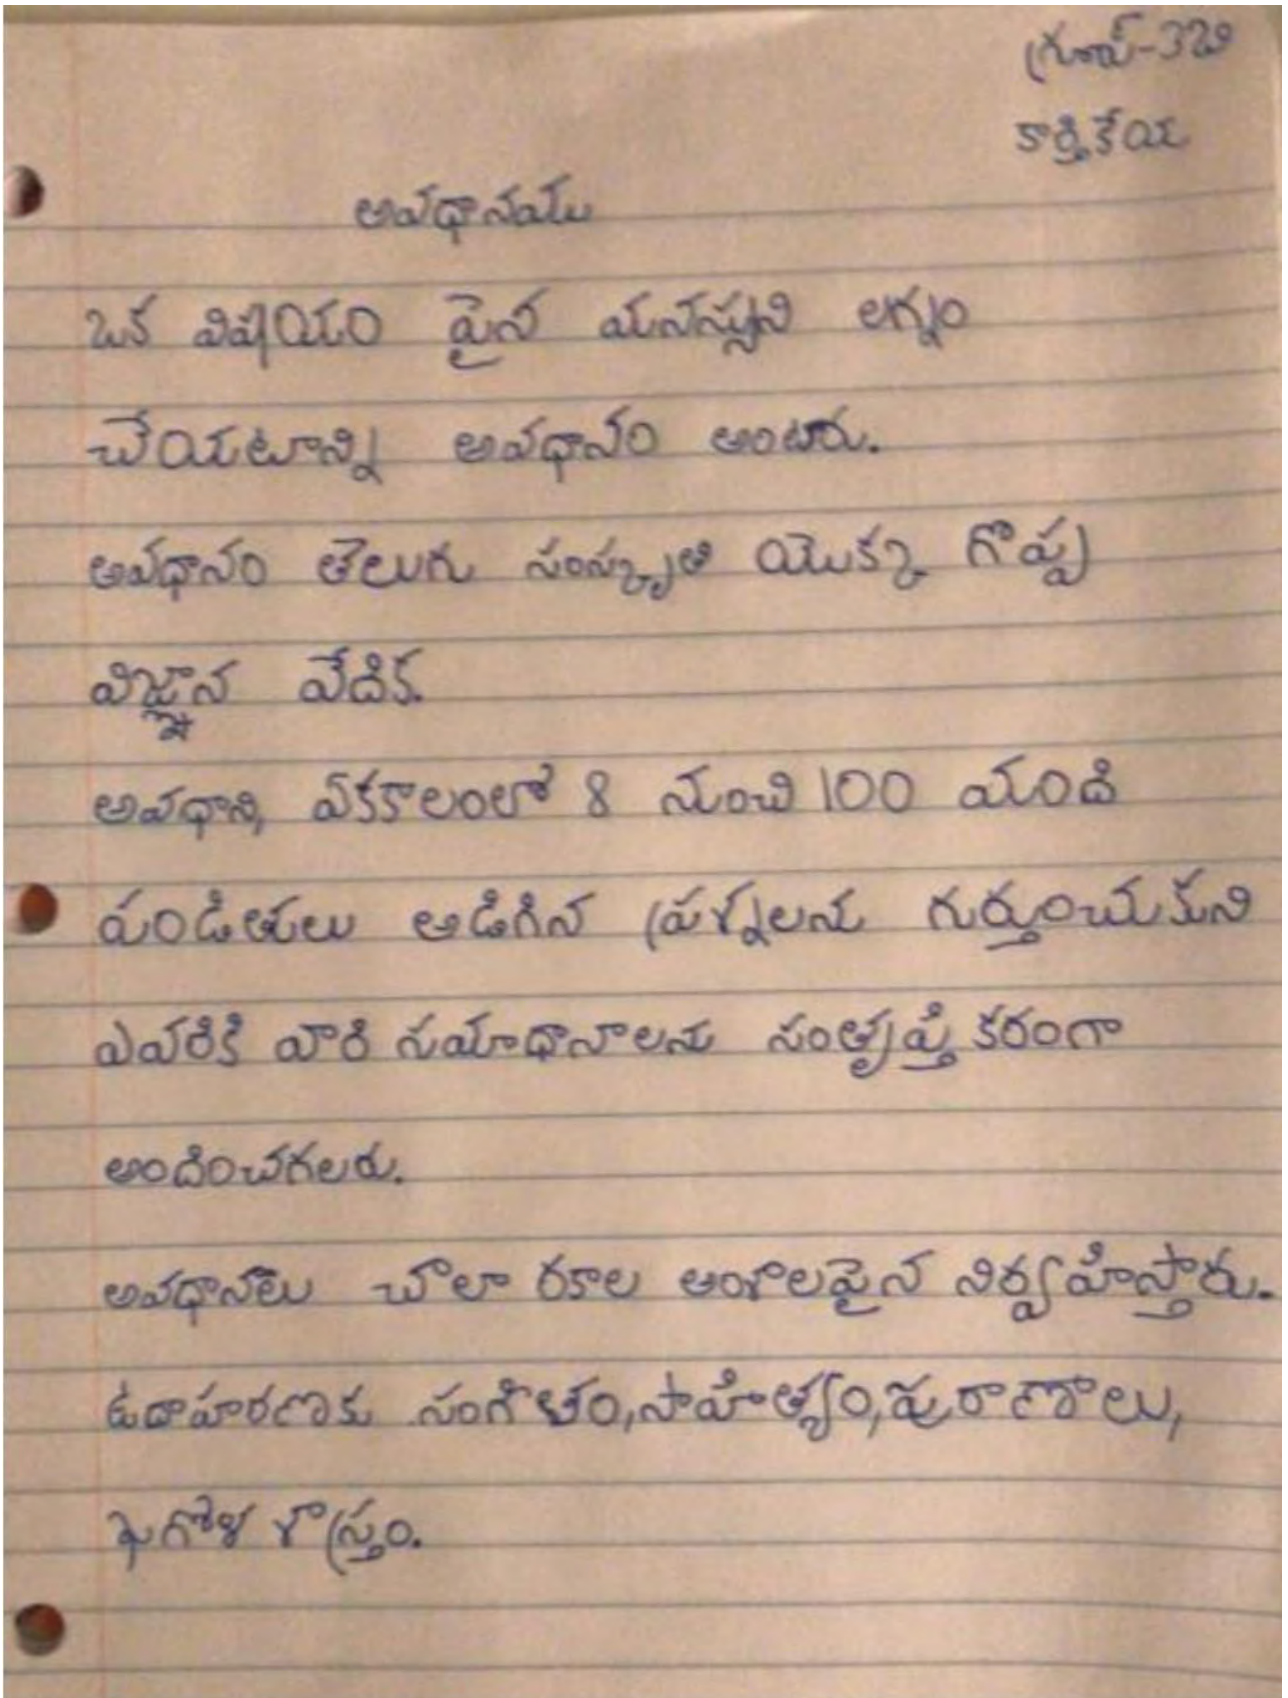 గ్రూప్-32బి
కార్తికేయ
అవధానము
ఒక విషయం పైన మనస్సుని లగ్నం
చేయటాన్ని అవధానం అంటారు.
అవధానం తెలుగు సంస్కృతి యొక్క గొప్ప
విజ్ఞాన వేదిక.
అవధాని, ఏకకాలంలో 8 నుంచి 100 మంది
పండితులు అడిగిన ప్రశ్నలను గుర్తుంచుకుని
ఎవరికి వారి సమాధానాలను సంతృప్తి కరంగా
అందించగలరు.
అవధానాలు చాలా రకాల అంశాలపైన నిర్వహిస్తారు.
ఉదాహరణకు సంగీతం,సాహిత్యం,పురాణాలు,
ఖగోళ శాస్త్రం.